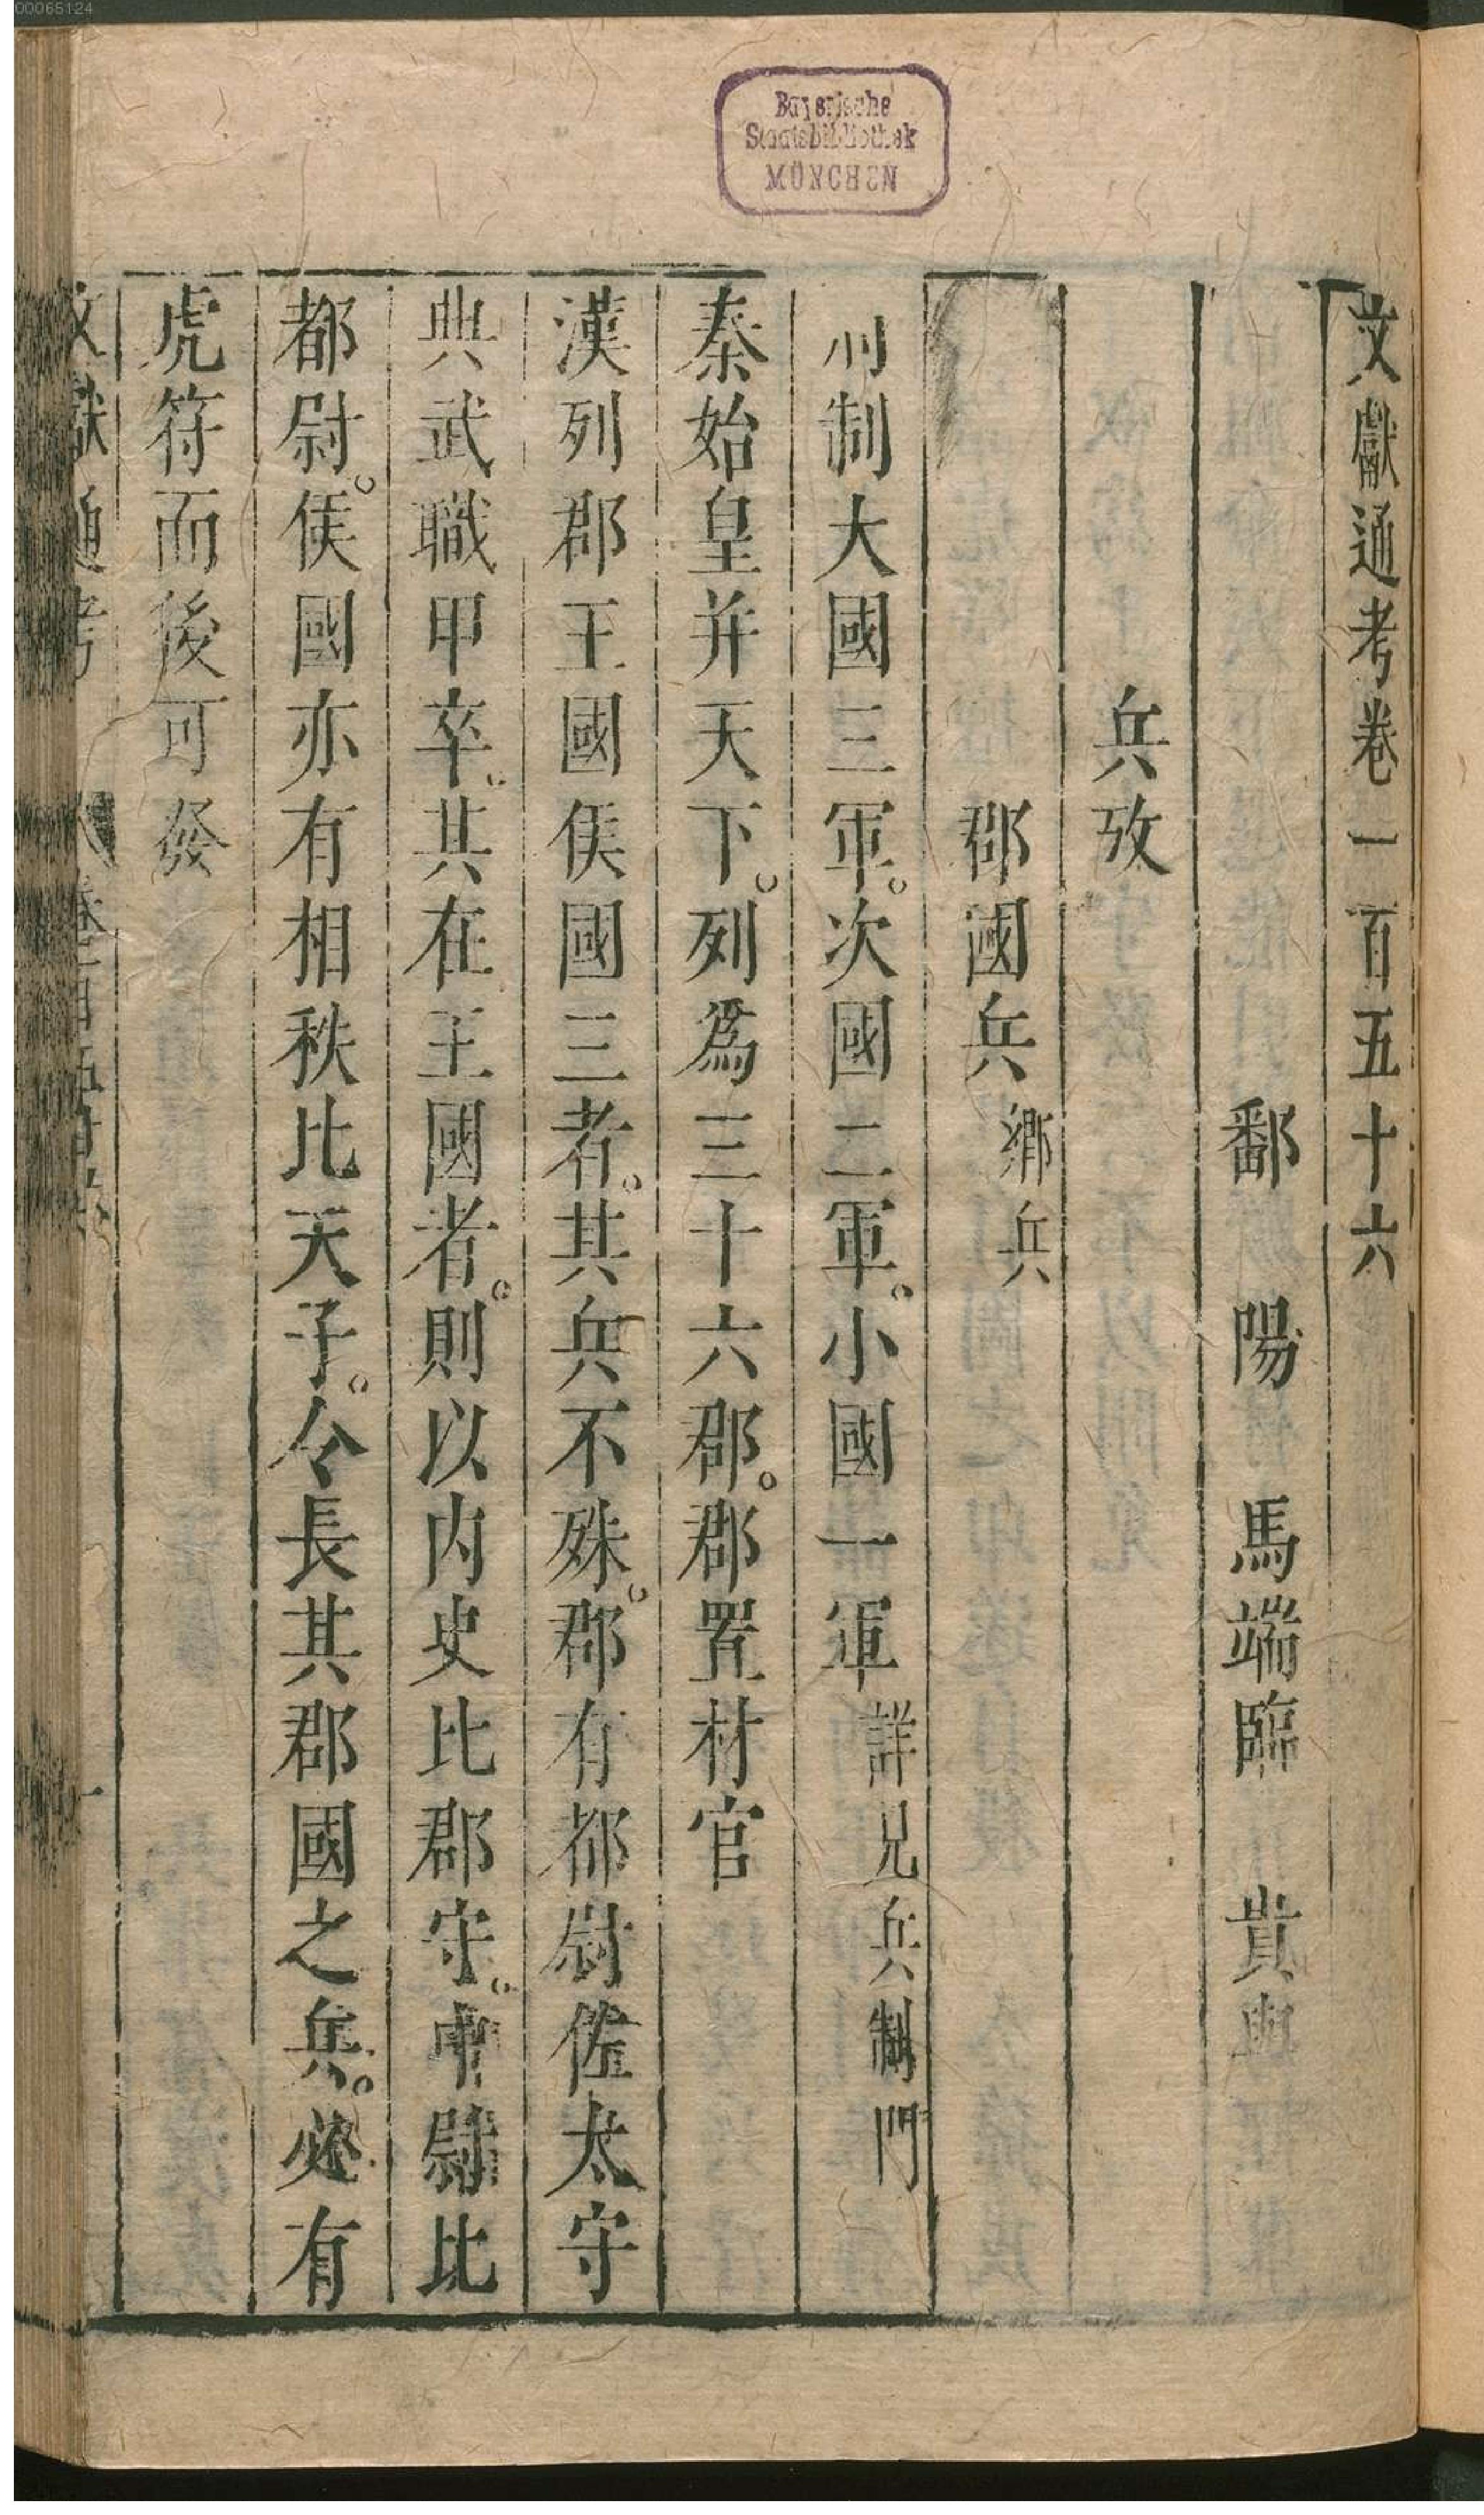 00065124
Bayerische
Staatsbibliothek
MÜNCHEN
文獻通考卷一百五十六
鄱陽馬端臨貴與
兵攷
郡國兵 鄉兵
制大國三軍。次國二軍。小國一軍 詳見兵制門
秦始皇并天下。列為三十六郡。郡置材官
漢列郡王國侯國三者。其兵不殊。郡有都尉佐太守
典武職甲卒。其在王國者。則以內史比郡守。中尉比
都尉。侯國亦有相秩比天子。令長其郡國之兵。必有
虎符而後可發
文獻通考 卷一百五十六 一